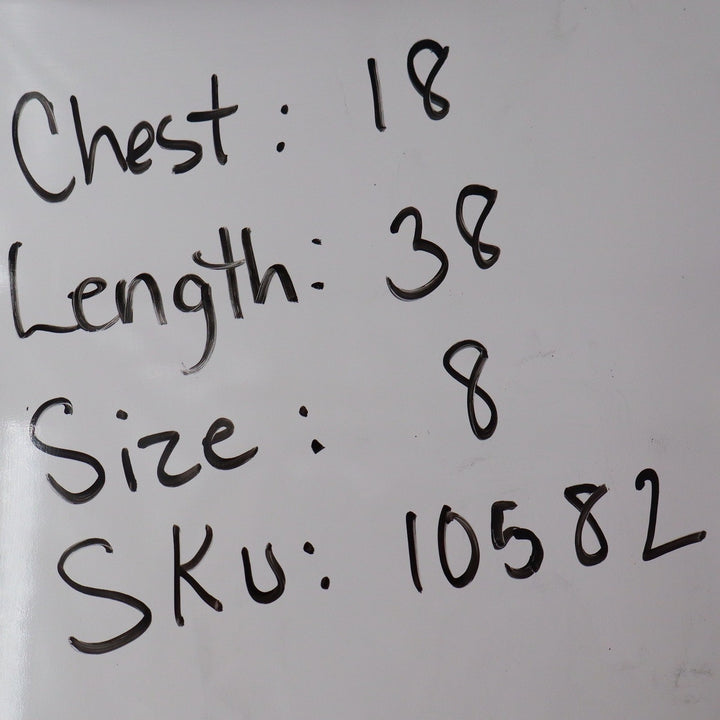 Chest: 18
Length: 38
Size: 8
SKU: 10582